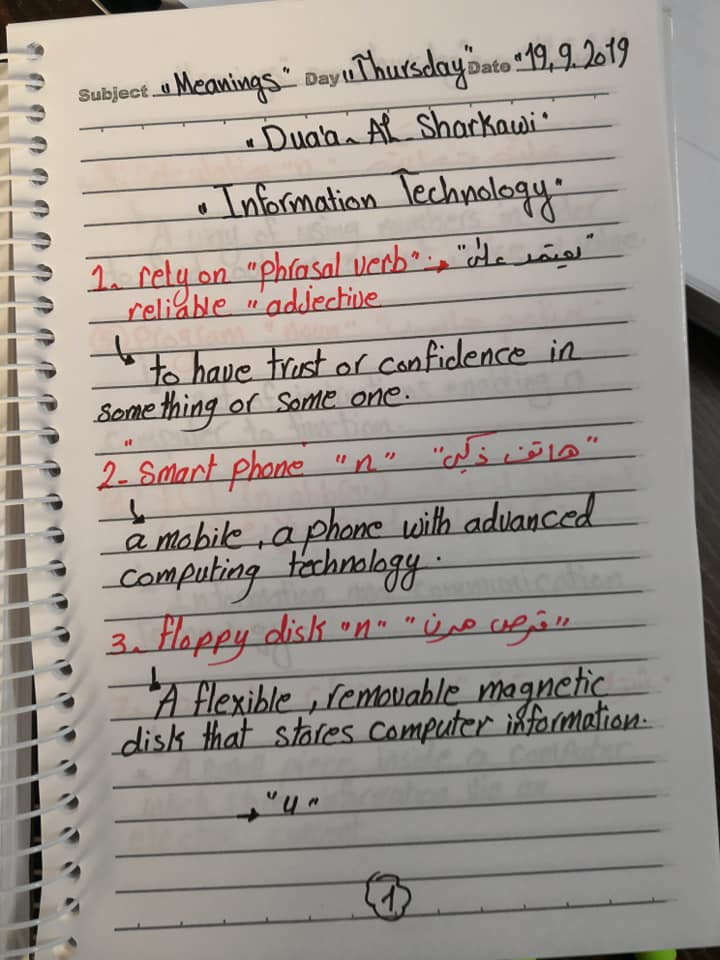 Subject "Meanings" Day "Thursday" Date "19,9.2019
"Dua'a Al Sharkawi"
"Information Technology"
1. rely on "phrasal verb" → "يعتمد على"
reliable "adjective
to have trust or confidence in
something or some one.
2- Smart phone "n" "هاتف ذكي"
a mobile, a phone with advanced
computing technology.
3. floppy disk "n" "قرص مرن"
A flexible, removable magnetic
disk that stores computer information.
→ "4"
1